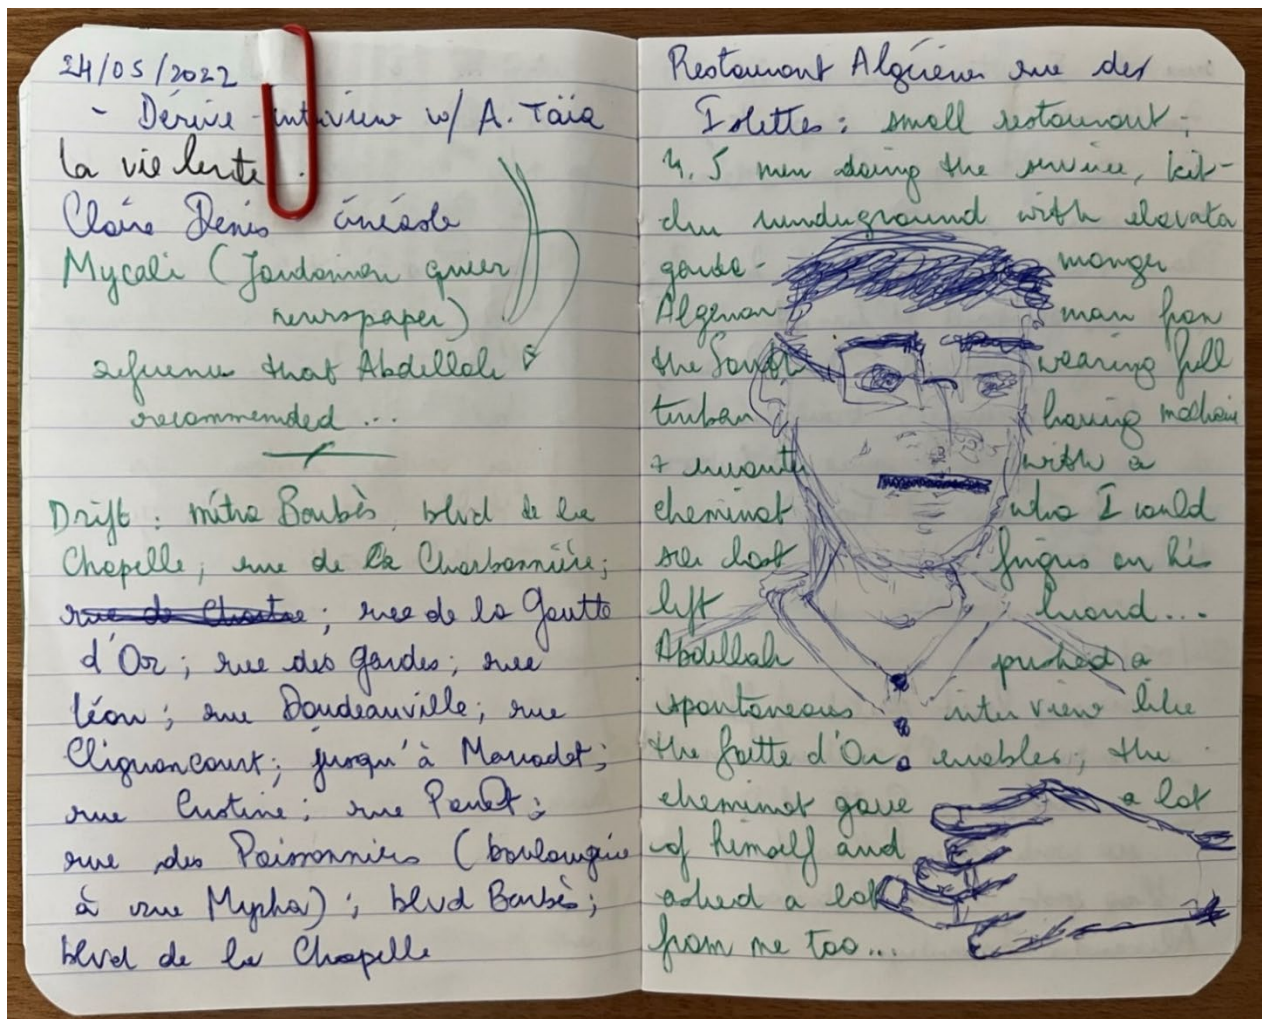 24/05/2022
- Dérive - interview w/ A. Taïa
La vie lente.
Claire Denis cinéaste
Mycali (Jordanian queer
newspaper)
reference that Abdellah
recommended ...
Drift : métro Barbès, blvd de la
Chapelle ; rue de la Charbonnière ;
rue de Chartre ; rue de la Goutte
d'Or ; rue des Gardes ; rue
Léon ; rue Doudeauville ; rue
Clignancourt ; jusqu'à Marcadet ;
rue Custine ; rue Poulet ;
rue des Poissonniers (boulangerie
à rue Myrha) ; blvd Barbès ;
blvd de la Chapelle
Restaurant Algérien rue des
Islettes : small restaurant ;
4, 5 men doing the service, kit-
chen underground with elevator
garde-manger
Algerian man from
the South wearing full
turban having
with a
cheminot who I could
see lost fingers on his
left hand ...
Abdellah pushed a
spontaneous interview like
the Goutte d'Or enables ; the
cheminot gave a lot
of himself and
asked a lot
from me too ...